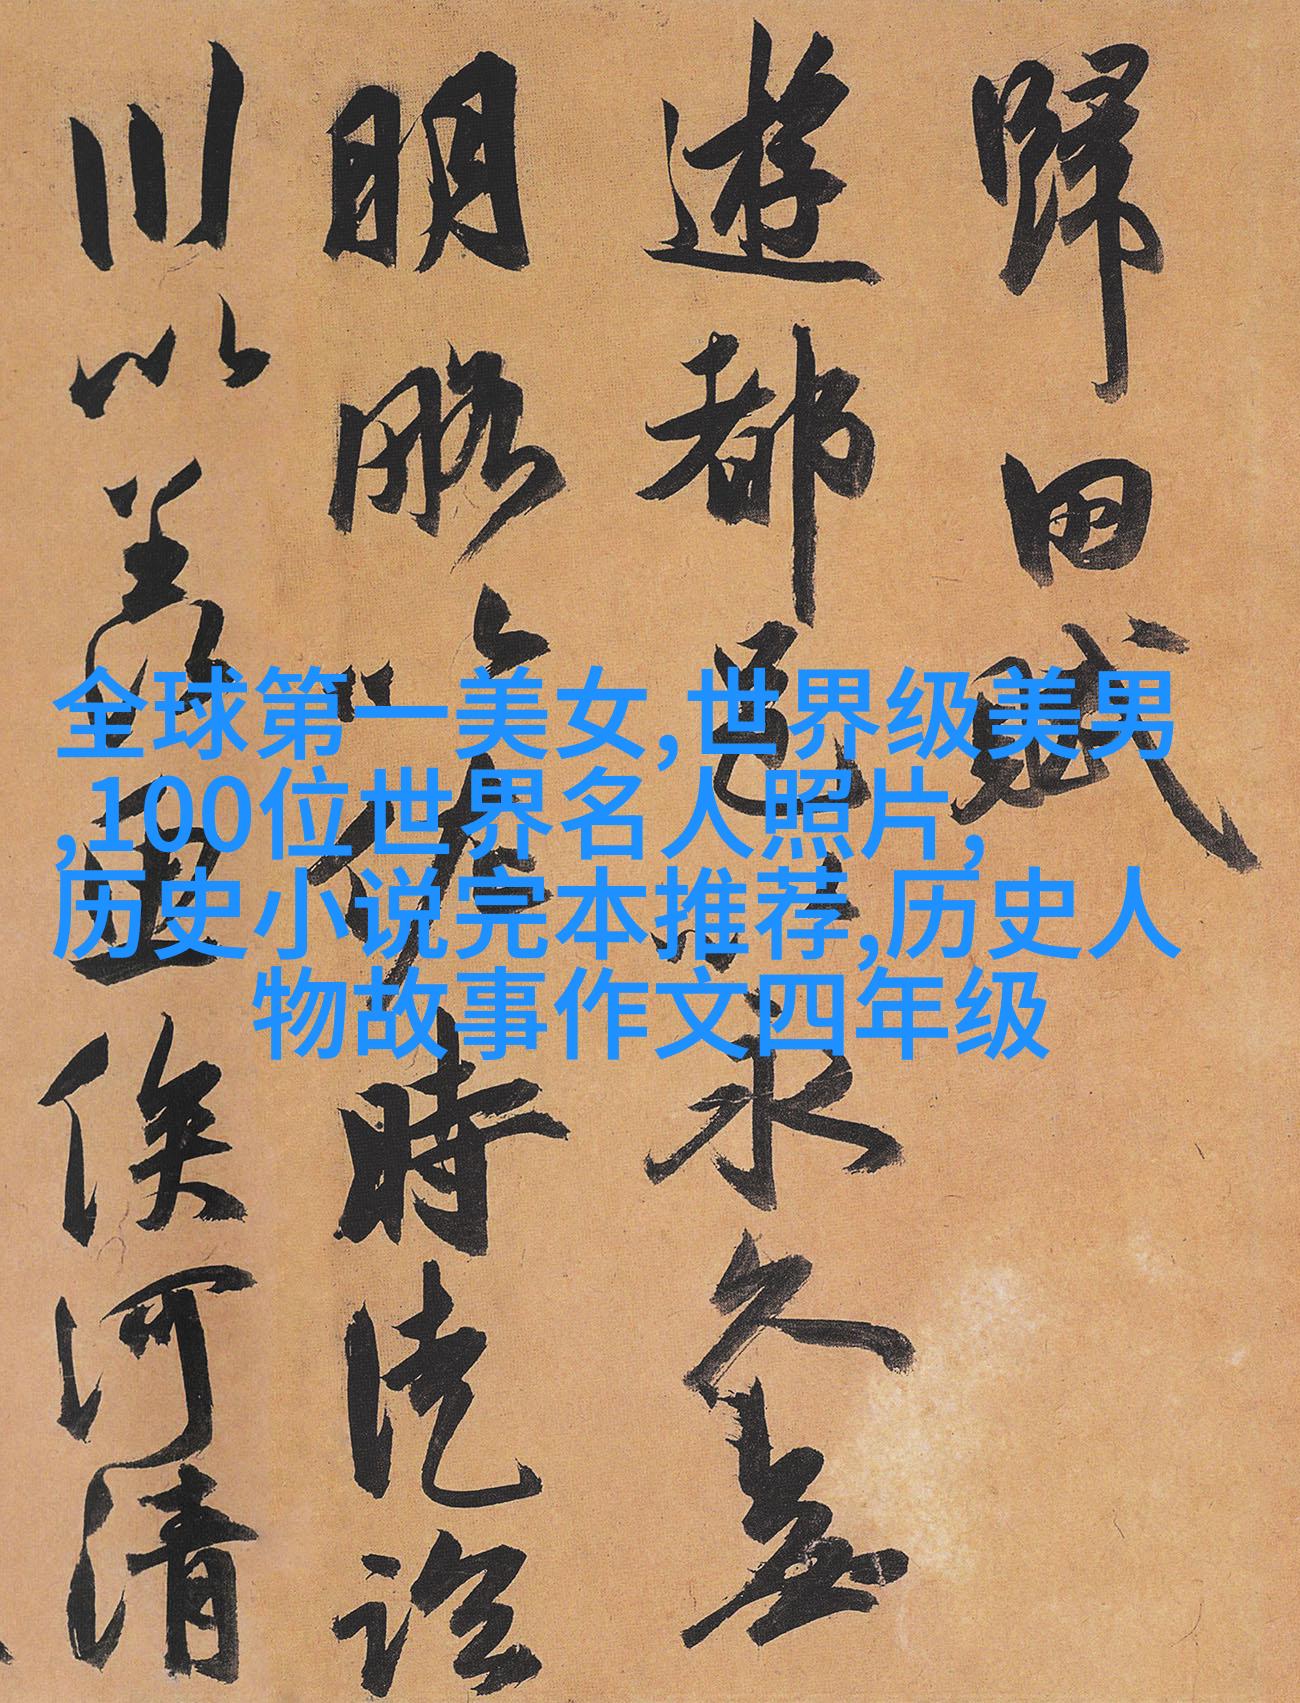 歸田賦
遊都邑以永久無
明略以佐時徒臨
川以羨魚俟河清
全球第一美女,世界级美男
,100位世界名人照片,
历史小说完本推荐,历史人
物故事作文四年级